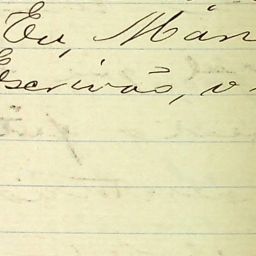 Eu, Mán
Escrivão, v